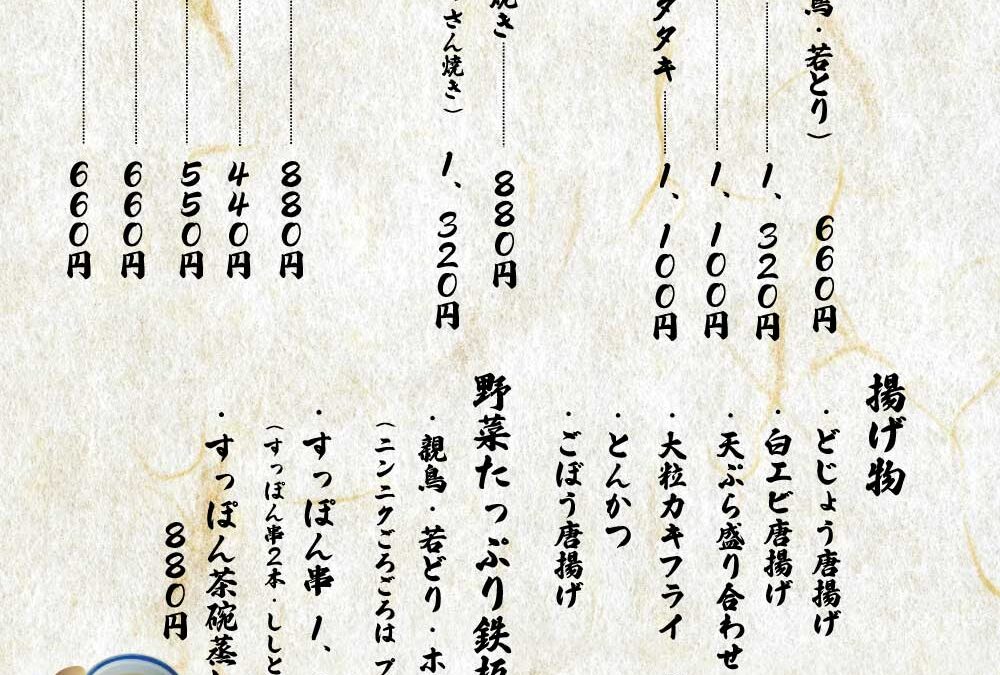 鳥・若どり)
660円
1、320円
1、100円
タタキ
1、100円
焼き
880円
さん焼き)
1、320円
880円
440円
550円
660円
660円
揚げ物
・どじょう唐揚げ
・白エビ唐揚げ
・天ぷら盛り合わせ
・大粒カキフライ
・とんかつ
・ごぼう唐揚げ
野菜たっぷり鉄板
・親鳥・若どり・ホ
(ニンニクごろごろは プ
・すっぽん串 1、
(すっぽん串2本・ししと
・すっぽん茶碗蒸し
880円